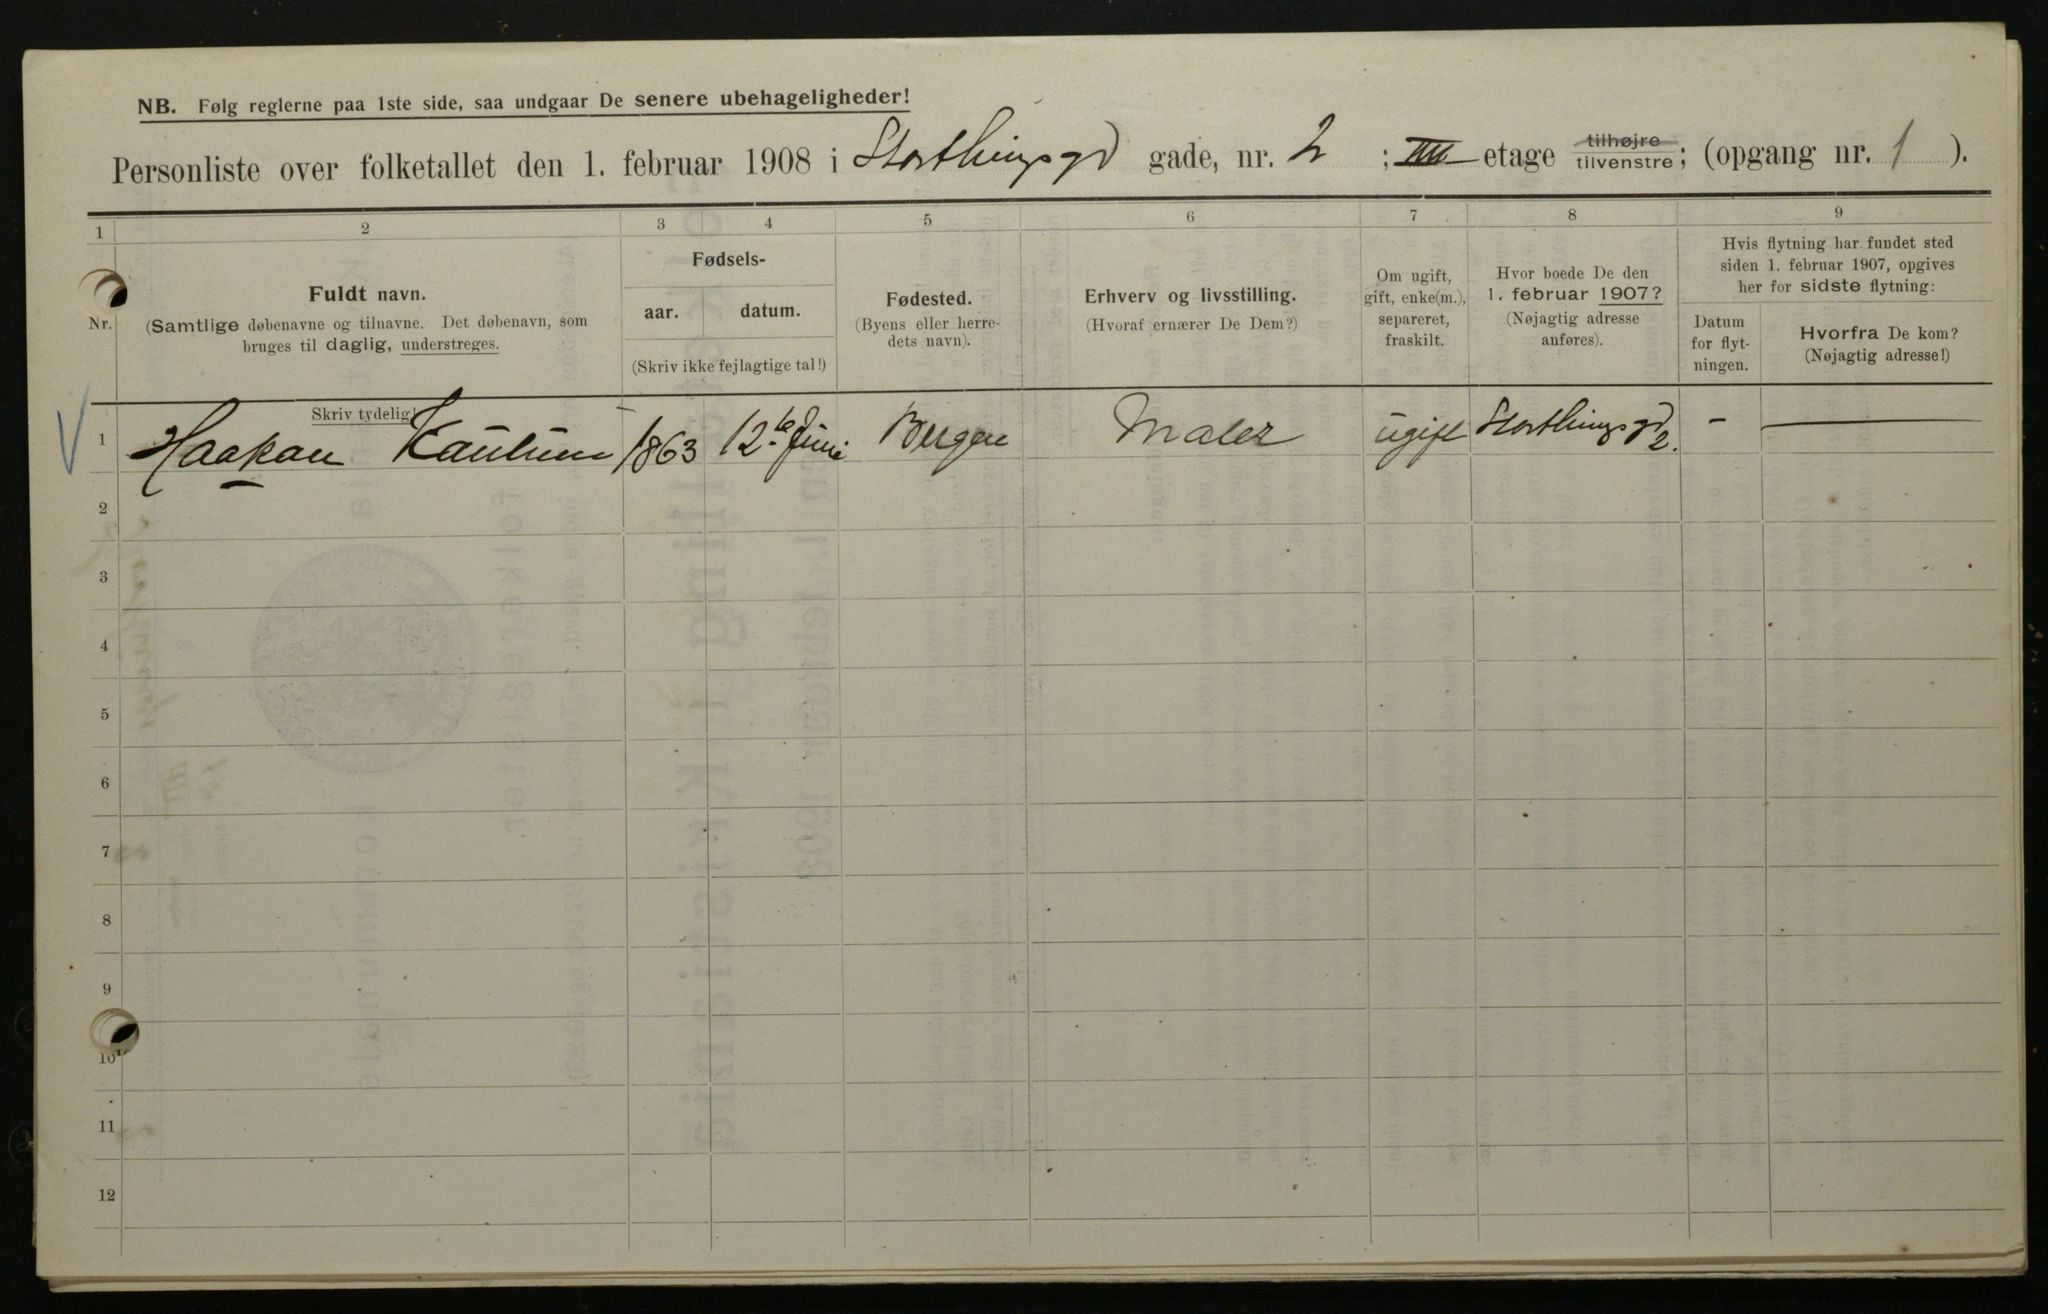 NB. Følg reglerne paa 1ste side, saa undgaar De senere ubehageligheder!
Personliste over folketallet den 1. februar 1908 i Storthingsgd gade, nr. 2 ; III etage tilhøjre tilvenstre; (opgang nr. 1 ).
1 2 3 4 5 6 7 8 9
Nr.
Fuldt navn.
(Samtlige døbenavne og tilnavne. Det døbenavn, som
bruges til daglig, understreges.
Skriv tydelig!
Fødsels-
aar. datum.
(Skriv ikke fejlagtige tal!)
Fødested.
(Byens eller herre-
dets navn).
Erhverv og livsstilling.
(Hvoraf ernærer De Dem?)
Om ugift,
gift, enke(m.),
separeret,
fraskilt.
Hvor boede De den
1. februar 1907?
(Nøjagtig adresse
anføres).
Hvis flytning har fundet sted
siden 1. februar 1907, opgives
her for sidste flytning:
Datum
for flyt-
ningen.
Hvorfra De kom?
(Nøjagtig adresse!)
1 Haakan 1863 12te Juni Bergen Maler ugift Storthingsgd 2. - —
2
3
4
5
6
7
8
9
10
11
12